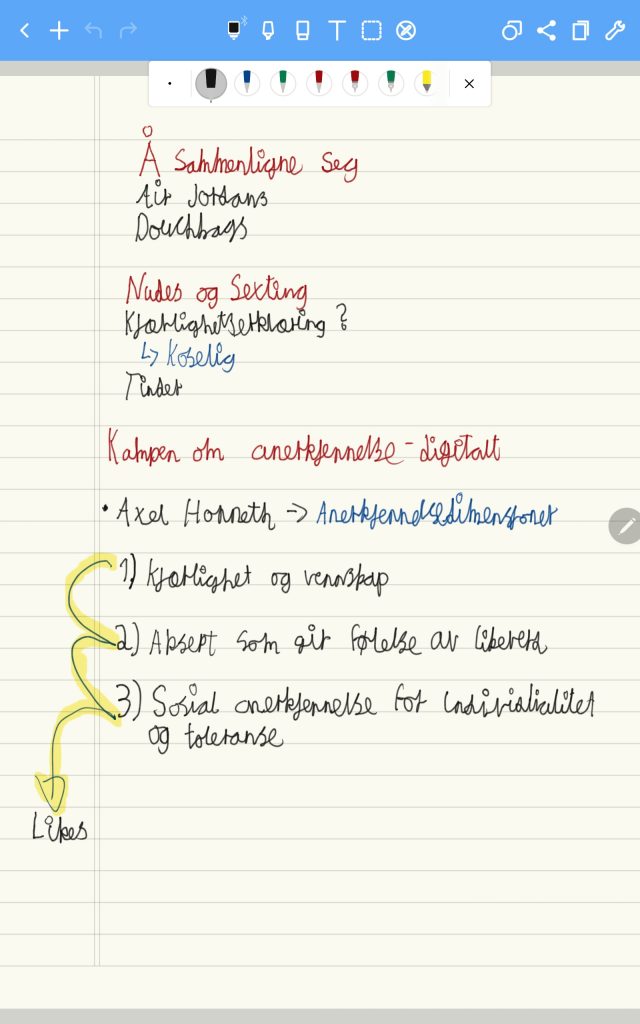 Å sammenligne seg
Air Jordans
Douchbags
Nudes og Sexting
Kjærlighetserklæring ?
↳ Koselig
Tinder
Kampen om anerkjennelse - digitalt
• Axel Honneth → Anerkjennelsesdimensjoner
1) Kjærlighet og vennskap
2) Aksept som gir følelse av likeverd
3) Sosial anerkjennelse for individualitet
og toleranse
Likes